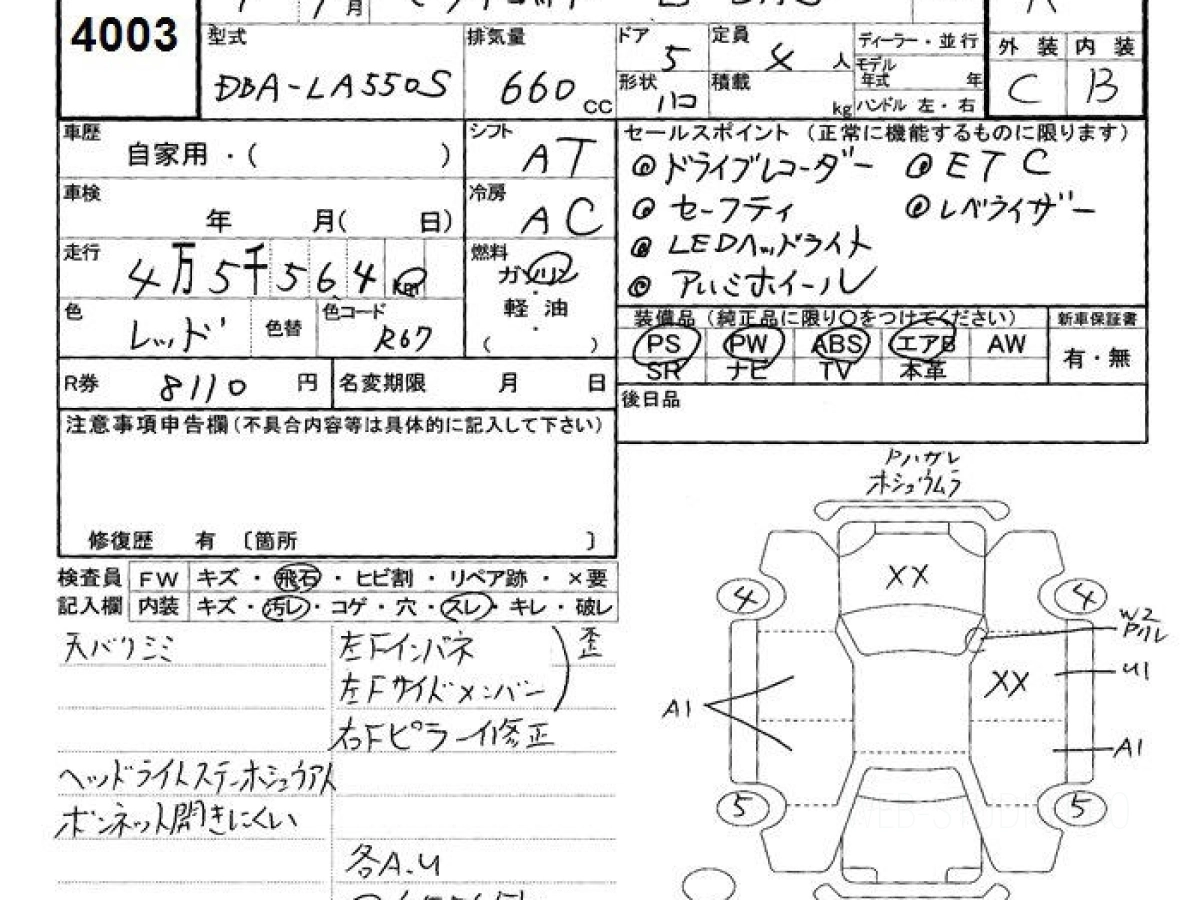 4003
月
型式
DBA-LA550S
排気量
660 CC
ドア
5
定員
4 人
形状
ハコ
積載
kg
ディーラー・並行
モデル
年式 年
ハンドル 左・右
外装 内装
C B
車歴
自家用・( )
シフト
AT
車検
年 月( 日)
冷房
AC
走行
4万5千564 km
燃料
ガソリン
・
軽油
・
( )
色
レッド
色替
色コード
R67
R券
8110 円
名変期限
月 日
セールスポイント(正常に機能するものに限ります)
◎ドライブレコーダー ◎ETC
◎セーフティ ◎レベライザー
◎LEDヘッドライト
◎アルミホイール
装備品(純正品に限り〇をつけてください)
PS PW ABS エアB AW
SR ナビ TV 本革
新車保証書
有・無
後日品
注意事項申告欄(不具合内容等は具体的に記入して下さい)
修復歴 有 〔箇所 〕
検査員 FW キズ・飛石・ヒビ割・リペア跡・×要
記入欄 内装 キズ・汚レ・コゲ・穴・スレ・キレ・破レ
天バリシミ
左Fインパネ
左Fサイドメンバー
歪
右Fピラー修正
ヘッドライトステーホシュウアト
ボンネット開きにくい
各A.U
Pハガレ
ホシュウムラ
XX
4
4
W2
Pハレ
XX
U1
A1
A1
5
5